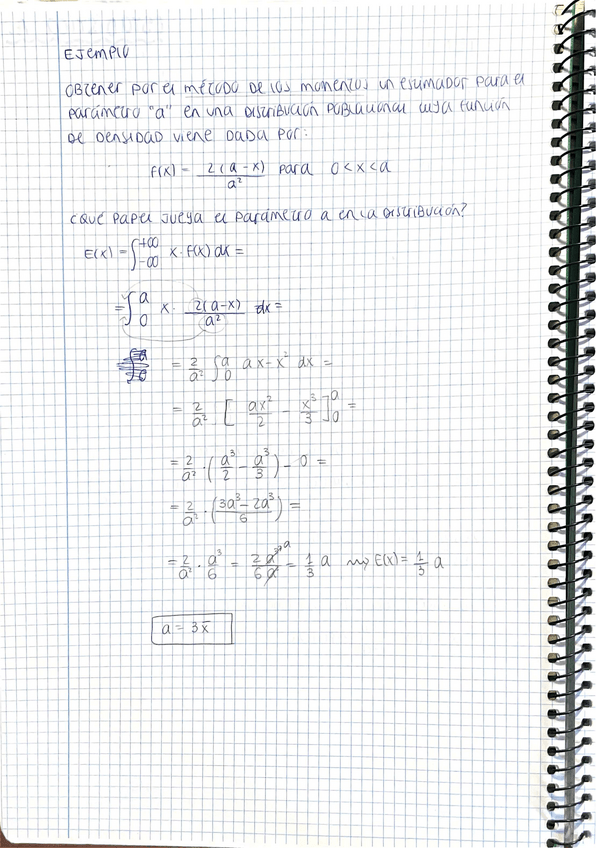 EJEMPLO
OBTENER POR EL MÉTODO DE LOS MOMENTOS UN ESTIMADOR PARA EL
PARÁMETRO "a" EN UNA DISTRIBUCIÓN POBLACIONAL CUYA FUNCIÓN
DE DENSIDAD VIENE DADA POR:
f(x) = 2(a-x)/a² para 0<x<a
¿QUÉ PAPEL JUEGA EL PARÁMETRO a EN LA DISTRIBUCIÓN?
E(x) = ∫_{-∞}^{+∞} x · f(x) dx =
= ∫_0^a x · 2(a-x)/a² dx =
= 2/a² ∫_0^a ax-x² dx =
= 2/a² [ax²/2 - x³/3]_0^a =
= 2/a² · (a³/2 - a³/3) - 0 =
= 2/a² · (3a³-2a³/6) =
= 2/a² · a³/6 = 2a³/6a² = 1/3 a ⇝ E(x) = 1/3 a
a = 3x̄